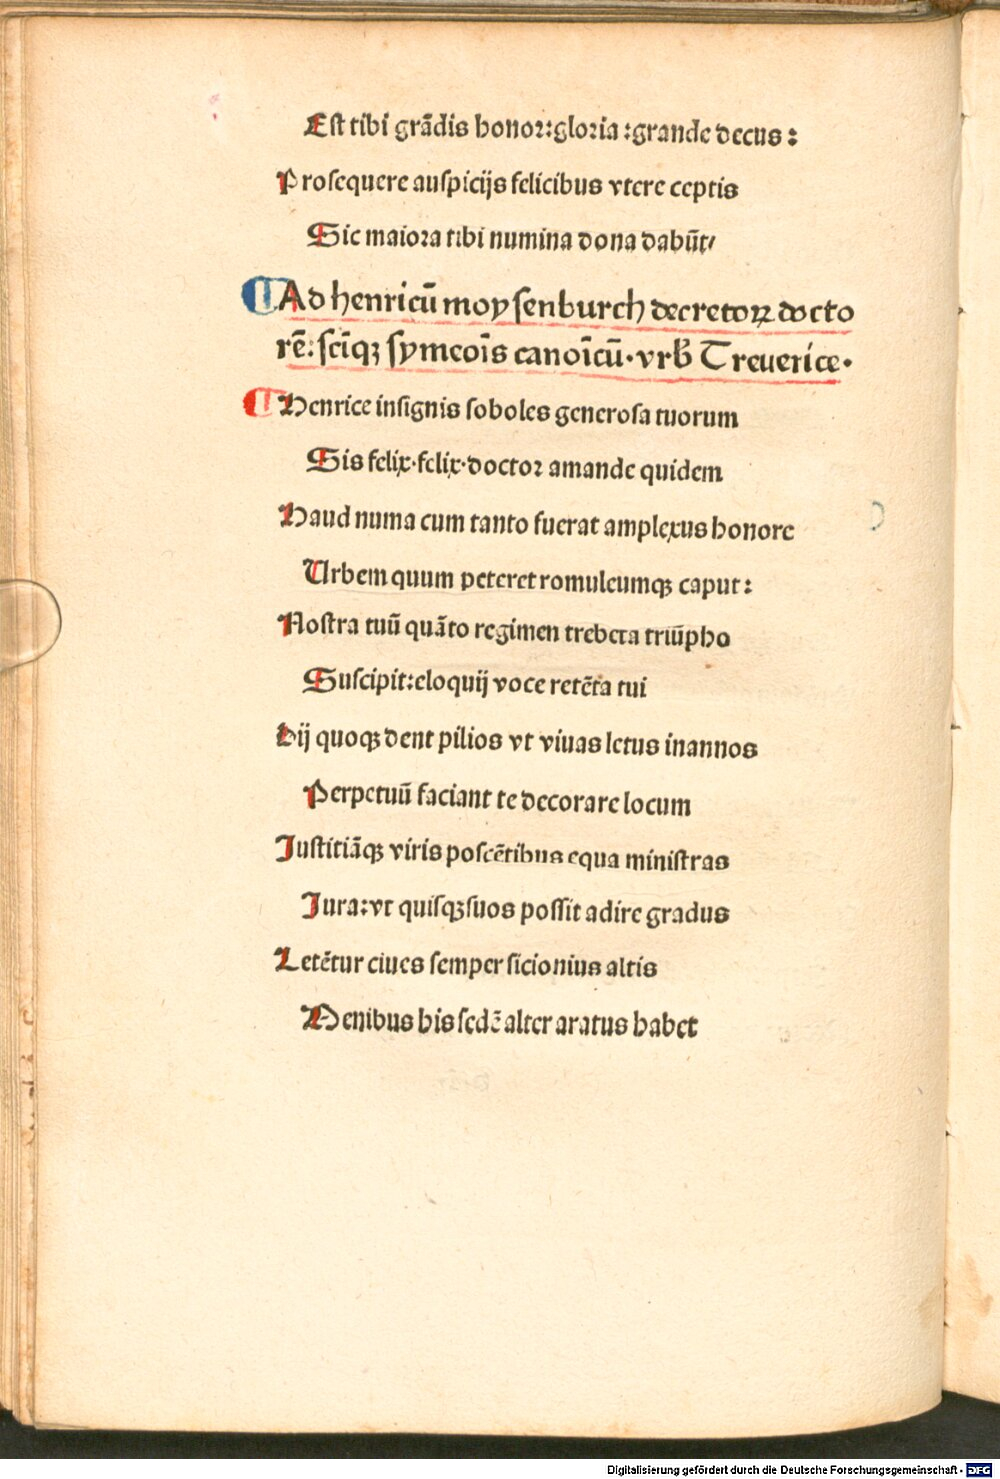 Est tibi grādis honor:gloria:grande decus:
Prosequere auspicijs felicibus vtere ceptis
Sic maiora tibi numina dona dabūt/
¶Ad henricū moysenburch decretoꝝ docto
rē: scīqꝫ symeoīs canoīcū·vrb̄ Treuerice·
¶Henrice insignis soboles generosa tuorum
Sis felix·felix·doctor amande quidem
Haud numa cum tanto fuerat amplexus honore
Urbem quum peteret romuleumqꝫ caput:
Nostra tuū quāto regimen trebeta triūpho
Suscipit:eloquij voce retēta tui
Dij quoqꝫ dent pilios vt viuas letus inannos
Perpetuū faciant te decorare locum
Justitiāqꝫ viris poscētibus equa ministras
Jura:vt quisqꝫ suos possit adire gradus
Letētur ciues semper sicionius altis
Menibus his sedē alter aratus habet
Digitalisierung gefördert durch die Deutsche Forschungsgemeinschaft - DFG